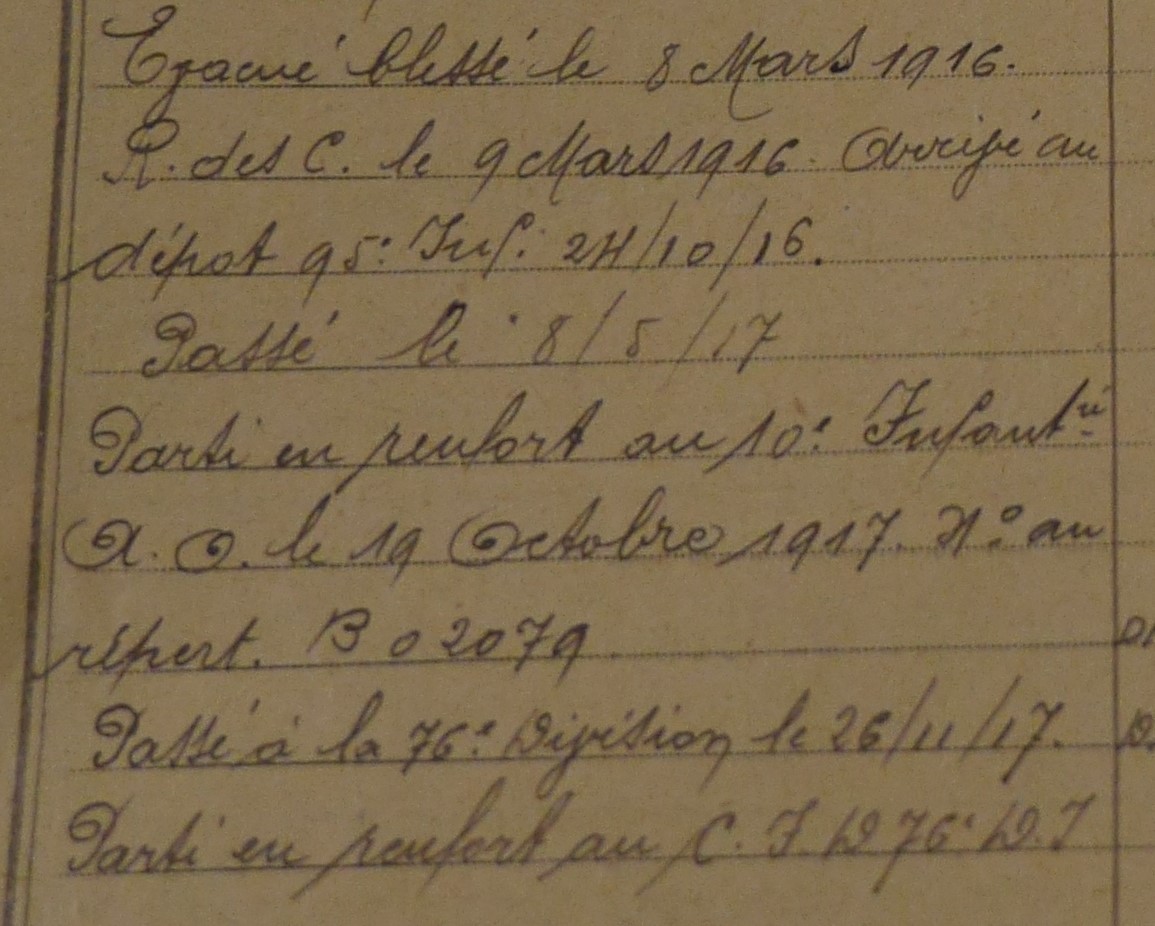 Evacué blessé le 8 Mars 1916.
R. des C. le 9 Mars 1916. Dirigé au
dépot 95e Inf. 24/10/16.
Passé le 8/5/17
Parti en renfort au 10e Infantrie
A. O. le 19 Octobre 1917. No au
répert. B 02079
Passé à la 76e Division le 26/11/17.
Parti en renfort au C. I. D 76e D. I